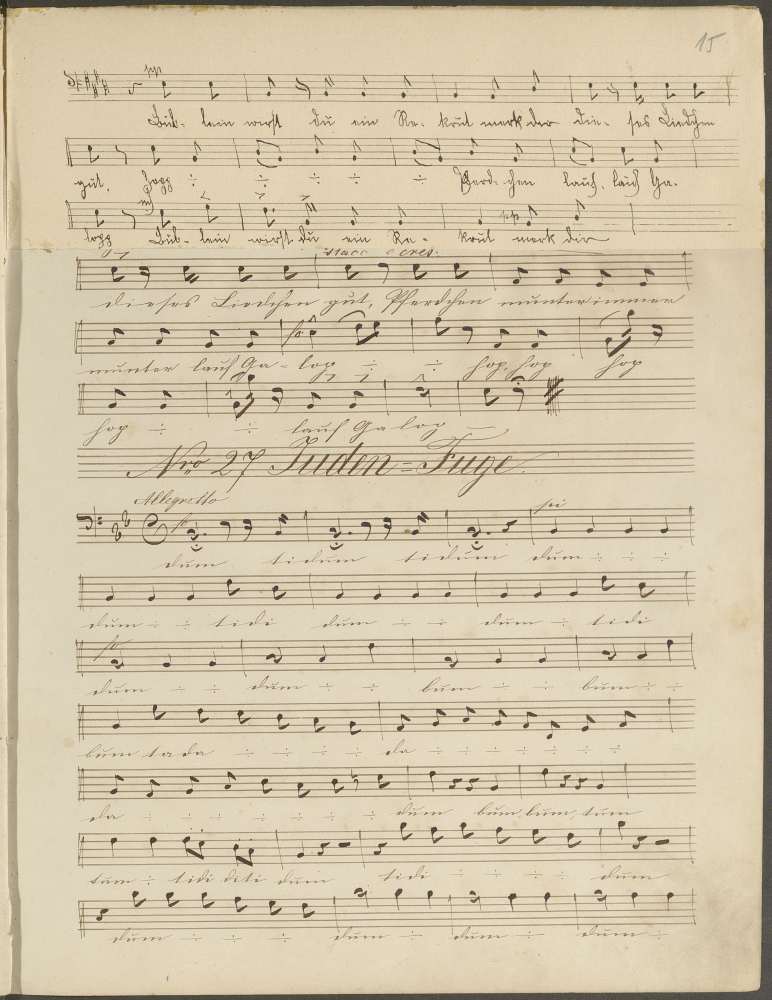 15
Büb- lein wirst du ein Re- krut merk dir die- ses Liedchen
gut, hopp ÷ ÷ ÷ ÷ ÷ Pferd- chen lauf, lauf Ga-
lopp Büb- lein wirst du ein Re- krut merk dir
stacc e cres.
dieses Liedchen gut, Pferdchen munter immer
munter lauf Ga- lop ÷ ÷ hop, hop hop
hop ÷ ÷ lauf Galop
Nro 27 Juden=Fuge.
Allegretto
dum tidum tidum dum ÷ ÷ ÷
dum ÷ ÷ tidi dum ÷ ÷ dum ÷ tidi
dum ÷ ÷ dum ÷ ÷ bum ÷ ÷ bum ÷ ÷
bum tada ÷ ÷ ÷ ÷ da ÷ ÷ ÷ ÷ ÷ ÷ ÷
da ÷ ÷ ÷ ÷ ÷ ÷ ÷ dum bum, bum, tum
tum ÷ tidi diti dum tidi ÷ ÷ ÷ ÷ dum
dum ÷ ÷ ÷ dum ÷ ÷ dum ÷ ÷ dum ÷